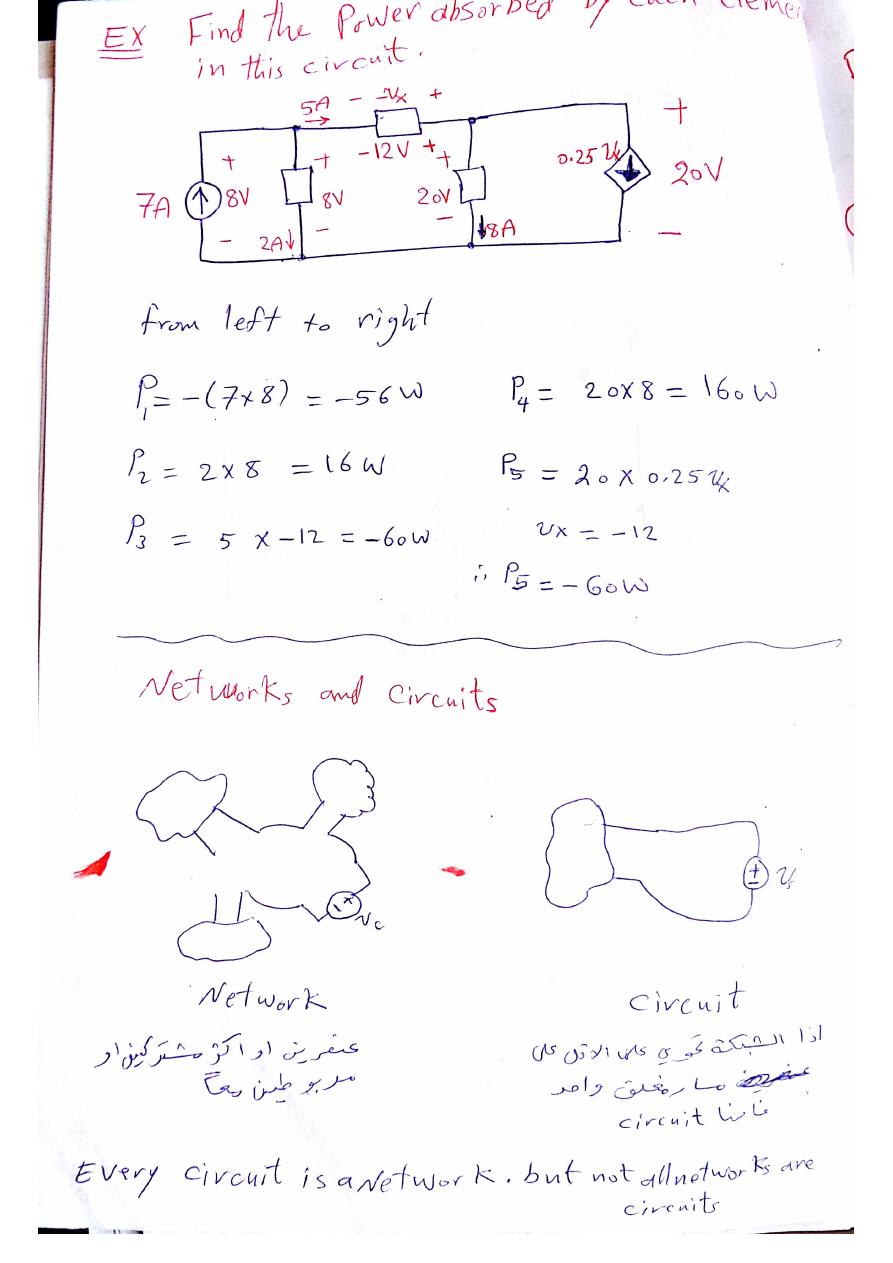 EX Find the Power absorbed by each eleme
in this circuit.
5A - -Vx +
-12V +
7A
+ 8V -
+ 8V -
2A
+ 20V -
8A
0.25 Vx
+ 20V -
from left to right
P1 = -(7x8) = -56 W
P2 = 2 x 8 = 16 W
P3 = 5 x -12 = -60 W
P4 = 20x8 = 160 W
P5 = 20 x 0.25 Vx
Vx = -12
∴ P5 = -60 W
Networks and Circuits
Vc
Vs
Network
عنصرين او اكثر مشتركين او
مربوطين معاً
Circuit
اذا الشبكة تحوي على الاقل على
مسار مغلق واحد
فانها circuit
Every circuit is a Network. but not all networks are
circuits